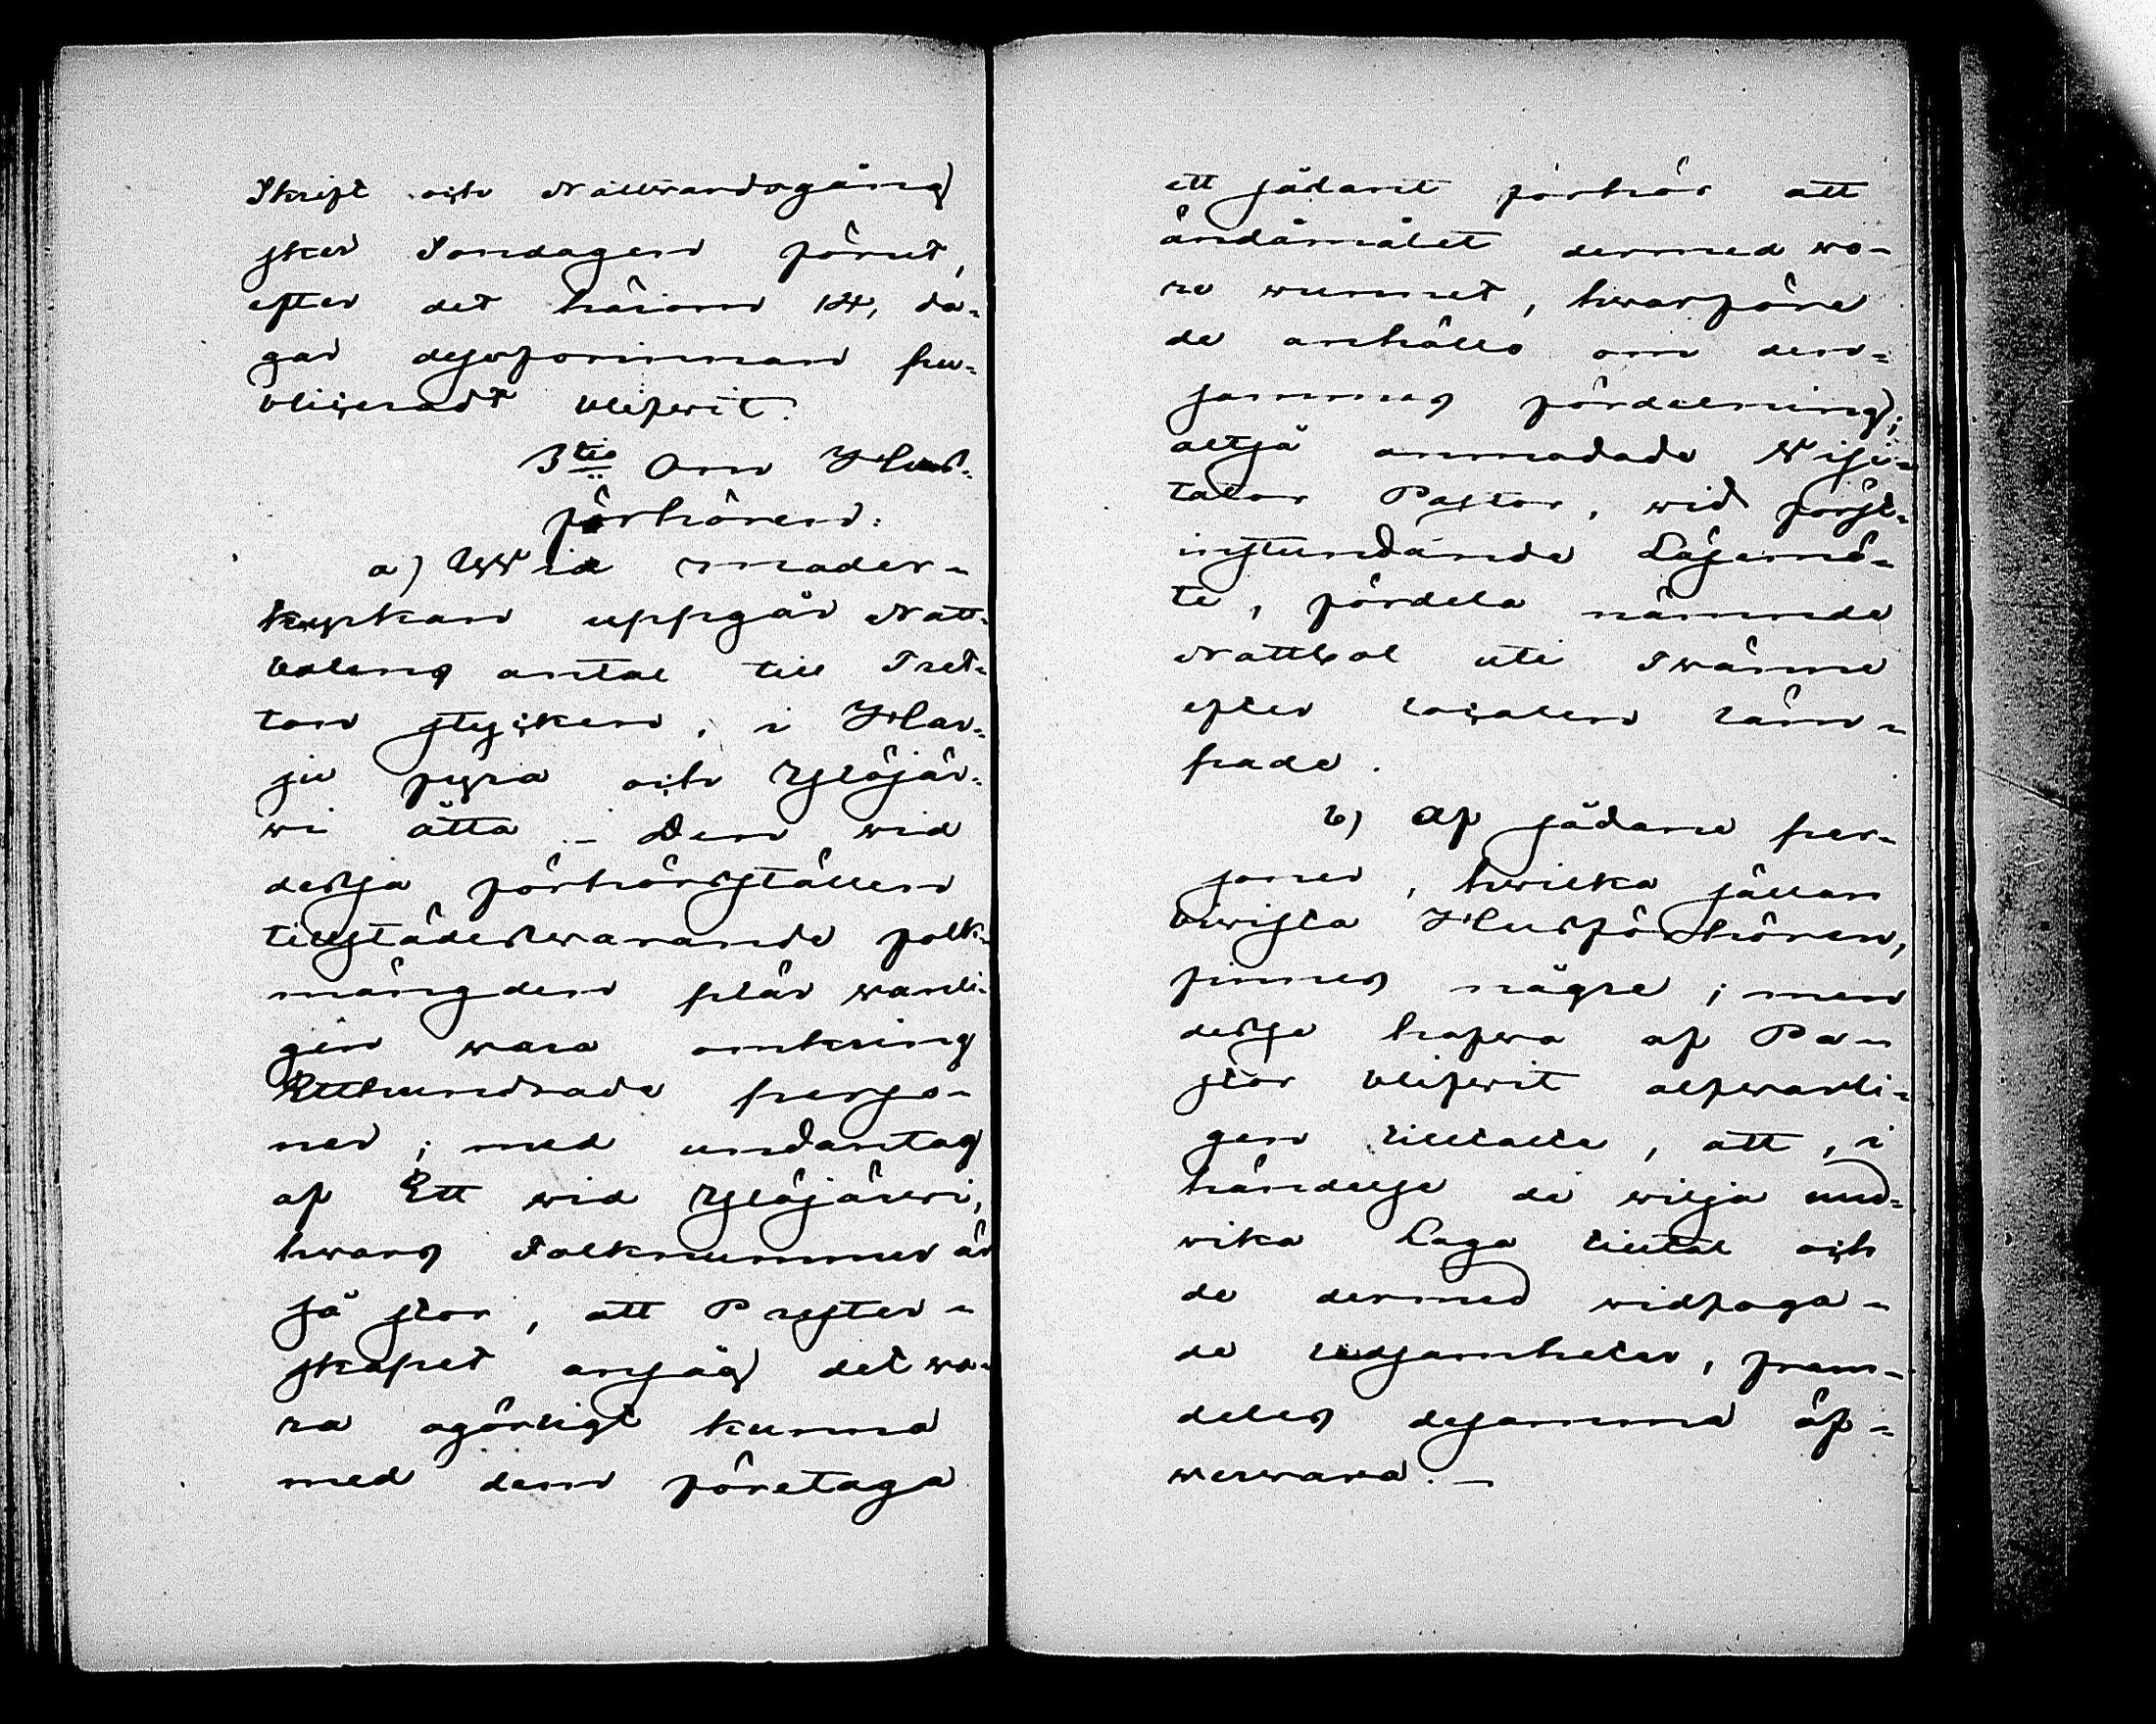 Skrift och Nattvardsgång
sker Sondagen förut,
efter det härom 14, da=
gar dessförinnan pu=
bliceradt blifwit.
3tio Om Hus=
förhören:
a) Wid moder=
kyrkan uppgår Natt=
bolens antal till Tret=
ton stycken, i Har=
ju fyra och Ylöjär=
wi åtta. – Den wid
dessa förhörsställen
tillstädeswarande folk=
mängden plär wanli=
gen wara omkring
Etthundrade perso=
ner; med undantag
af Ett wid Ylöjärwi,
hwars Folknummer är
så stor, att Prester=
skapet ansåg det wa=
ra ogörligt kunna
med dem företaga
ett sådant förhör att
ändamålet dermed wo=
re wunnet, hwarföre
de anhållo om den=
sammas fördelning;
altså anmodade Wisi=
tator Pastor, wid först
instundande Läsemö=
te, fördela nämnde
Nattbol uti Twänne
efter localen läm=
pade.
b) Af sådane per=
soner, hwilka sällan
biwista Husförhören,
finnes någre; men
desse hafwa af Pa=
stor blifwit alfwarli=
gen tilltalte, att, i
händelse de wilja und=
wika Laga tilltal och
de dermed widfoga=
de ledsamheter, fram=
deles desamma öf=
werwara. –